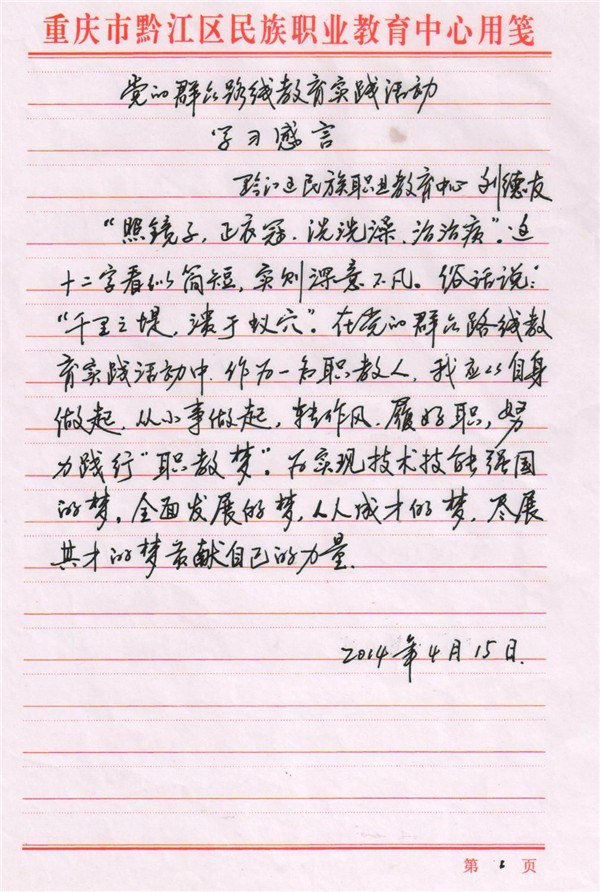 重庆市黔江区民族职业教育中心用笺
党的群众路线教育实践活动
学习感言
黔江区民族职业教育中心 刘德友
“照镜子，正衣冠，洗洗澡，治治病”。这
十二字看似简短，实则深意不凡。俗话说：
“千里之堤，溃于蚁穴”。在党的群众路线教
育实践活动中，作为一名职教人，我应从自身
做起，从小事做起，转作风，履好职，努
力践行“职教梦”。为实现技术技能强国
的梦，全面发展的梦，人人成才的梦，尽展
其才的梦贡献自己的力量。
2014年4月15日.
第 页